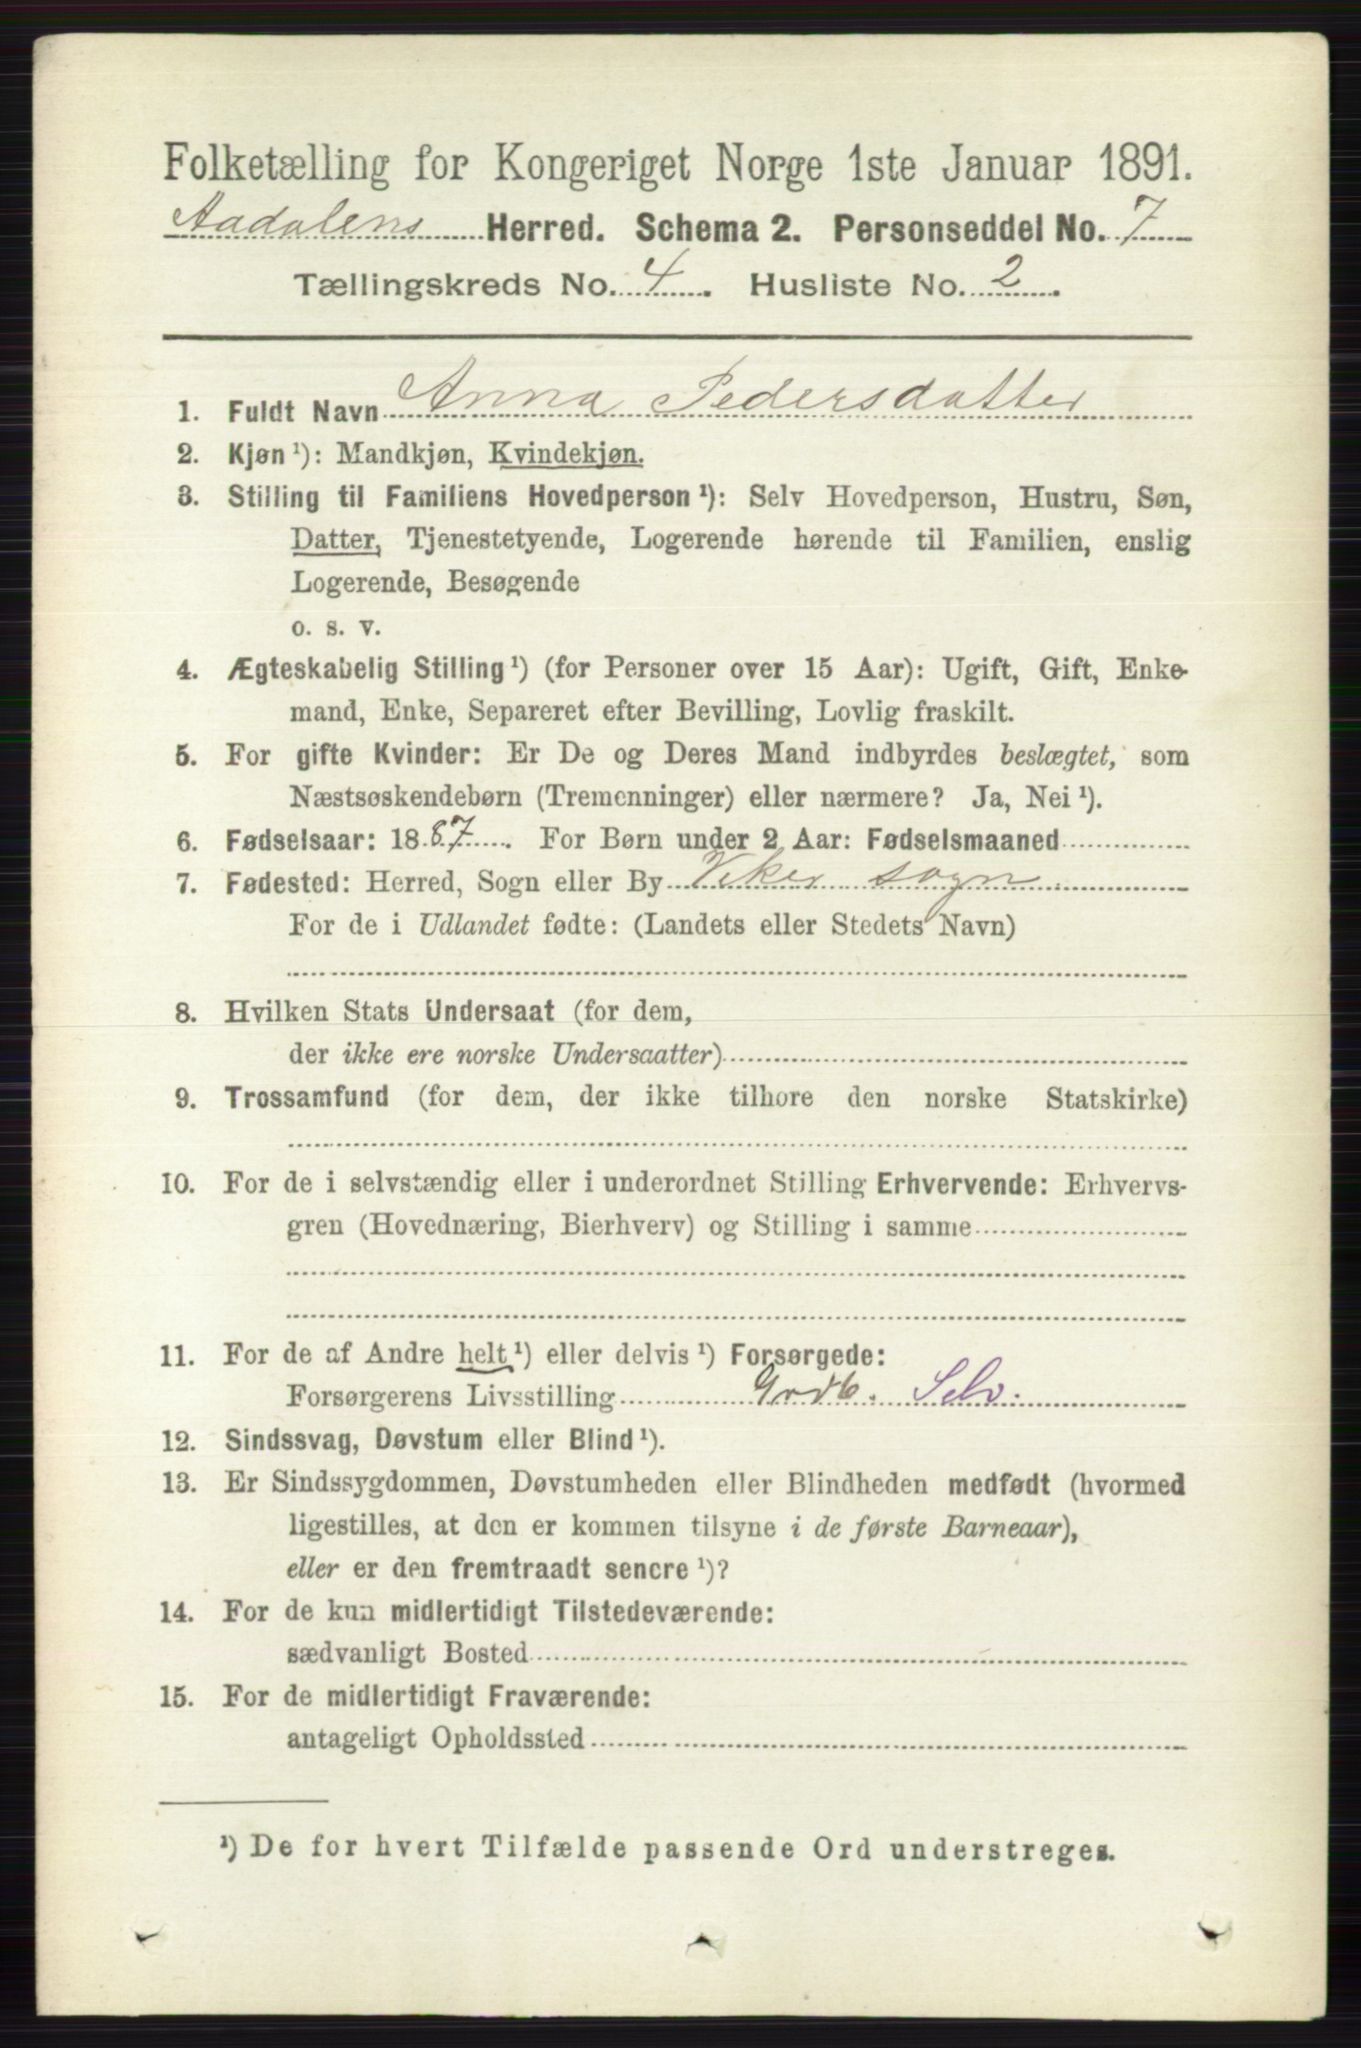 Folketælling for Kongeriget Norge 1ste Januar 1891.
Aadalens Herred. Schema 2. Personseddel No. 7
Tællingskreds No. 4. Husliste No. 2.
1. Fuldt Navn Anna Pedersdatter
2. Kjøn ¹): Mandkjøn, Kvindekjøn.
3. Stilling til Familiens Hovedperson ¹): Selv Hovedperson, Hustru, Søn,
Datter, Tjenestetyende, Logerende hørende til Familien, enslig
Logerende, Besøgende
o. s. v.
4. Ægteskabelig Stilling ¹) (for Personer over 15 Aar): Ugift, Gift, Enke-
mand, Enke, Separeret efter Bevilling, Lovlig fraskilt.
5. For gifte Kvinder: Er De og Deres Mand indbyrdes beslægtet, som
Næstsøskendebørn (Tremenninger) eller nærmere? Ja, Nei ¹).
6. Fødselsaar: 1887. For Børn under 2 Aar: Fødselsmaaned
7. Fødested: Herred, Sogn eller By Viker sogn
For de i Udlandet fødte: (Landets eller Stedets Navn)
8. Hvilken Stats Undersaat (for dem,
der ikke ere norske Undersaatter)
9. Trossamfund (for dem, der ikke tilhøre den norske Statskirke)
10. For de i selvstændig eller i underordnet Stilling Erhvervende: Erhvervs-
gren (Hovednæring, Bierhverv) og Stilling i samme
11. For de af Andre helt ¹) eller delvis ¹) Forsørgede:
Forsørgerens Livsstilling Grdb. Selv.
12. Sindssvag, Døvstum eller Blind ¹).
13. Er Sindssygdommen, Døvstumheden eller Blindheden medfødt (hvormed
ligestilles, at den er kommen tilsyne i de første Barneaar),
eller er den fremtraadt senere ¹)?
14. For de kun midlertidigt Tilstedeværende:
sædvanligt Bosted
15. For de midlertidigt Fraværende:
antageligt Opholdssted
¹) De for hvert Tilfælde passende Ord understreges.